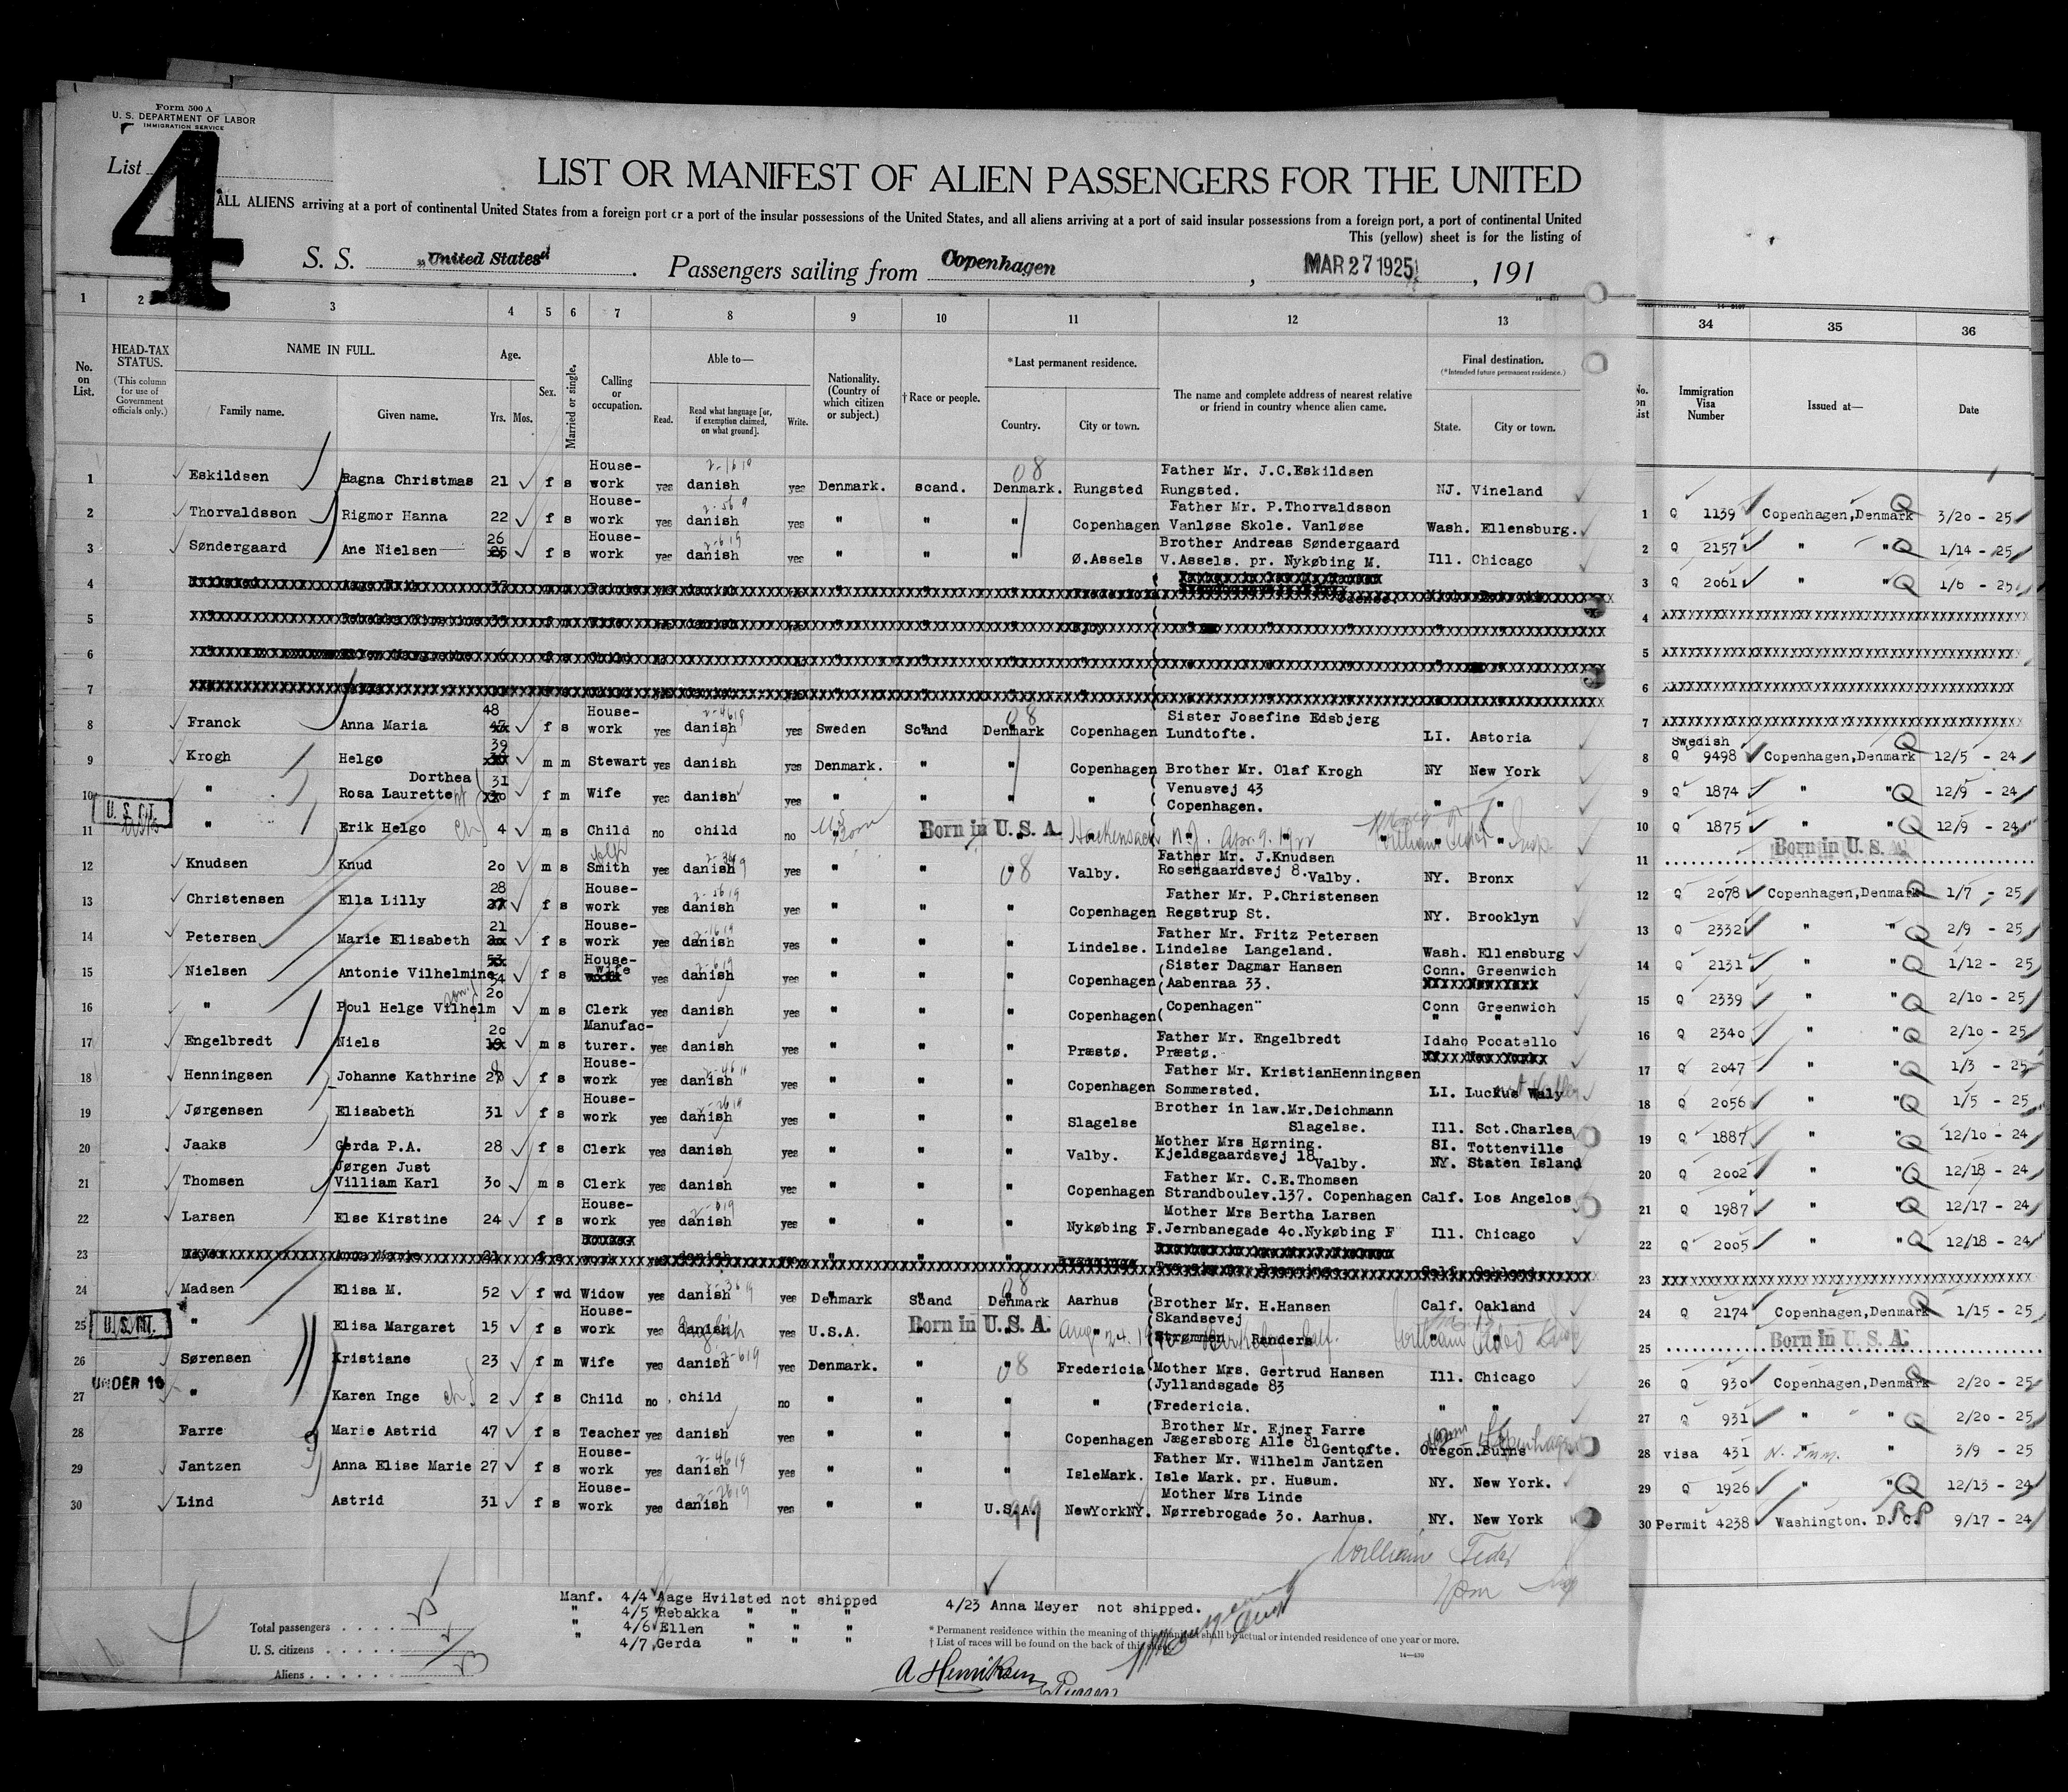 Form 500 A
U. S. DEPARTMENT OF LABOR
IMMIGRATION SERVICE
List
4
LIST OR MANIFEST OF ALIEN PASSENGERS FOR THE UNITED
ALL ALIENS arriving at a port of continental United States from a foreign port or a port of the insular possessions of the United States, and all aliens arriving at a port of said insular possessions from a foreign port, a port of continental United
This (yellow) sheet is for the listing of
S. S. „United States" . Passengers sailing from Copenhagen , MAR 27 1925 , 191
1 2 3 4 5 6 7 8 9 10 11 12 13 34 35 36
No. on List. HEAD-TAX STATUS. (This column for use of Government officials only.) NAME IN FULL. Family name. Given name. Age. Yrs. Mos. Sex. Married or single. Calling or occupation. Able to— Read. Read what language [or, if exemption claimed, on what ground]. Write. Nationality. (Country of which citizen or subject.) †Race or people. *Last permanent residence. Country. City or town. The name and complete address of nearest relative or friend in country whence alien came. Final destination. (*Intended future permanent residence.) State. City or town.
No. on List Immigration Visa Number Issued at— Date
1 Eskildsen Ragna Christmas 21 f s House-work yes danish yes Denmark. scand. Denmark. Rungsted Father Mr. J.C.Eskildsen Rungsted. NJ. Vineland
2 Thorvaldsson Rigmor Hanna 22 f s House-work yes danish yes " " " Copenhagen Father Mr. P.Thorvaldsson Vanløse Skole. Vanløse Wash. Ellensburg.
3 Søndergaard Ane Nielsen 26 f s House-work yes danish yes " " " Ø.Assels Brother Andreas Søndergaard V.Assels. pr. Nykøbing M. Ill. Chicago
4
5
6
7
8 Franck Anna Maria 48 f s House-work yes danish yes Sweden Scand Denmark Copenhagen Sister Josefine Edsbjerg Lundtofte. LI. Astoria
9 Krogh Helgo 39 m m Stewart yes danish yes Denmark. " " Copenhagen Brother Mr. Olaf Krogh NY New York
10 " Dorthea Rosa Laurette 31 f m Wife yes danish yes " " " " Venusvej 43 Copenhagen. " "
U. S. CIT.
11 " Erik Helgo ch 4 m s Child no child no U.S. Born Born in U. S. A. Hackensack N.J. Apr. 9. 1922
12 Knudsen Knud 20 m s Smith yes danish yes " " " Valby. Father Mr. J.Knudsen Rosengaardsvej 8. Valby. NY. Bronx
13 Christensen Ella Lilly 28 f s House-work yes danish yes " " " Copenhagen Father Mr. P.Christensen Regstrup St. NY. Brooklyn
14 Petersen Marie Elisabeth 21 f s House-work yes danish yes " " " Lindelse. Father Mr. Fritz Petersen Lindelse Langeland. Wash. Ellensburg
15 Nielsen Antonie Vilhelmine 54 f s House-wife yes danish yes " " " Copenhagen Sister Dagmar Hansen Aabenraa 33. Conn. Greenwich
16 " Poul Helge Vilhelm son 20 m s Clerk yes danish yes " " " Copenhagen Copenhagen" Conn Greenwich
17 Engelbredt Niels 20 m s Manufac-turer. yes danish yes " " " Præstø. Father Mr. Engelbredt Præstø. Idaho Pocatello
18 Henningsen Johanne Kathrine 28 f s House-work yes danish yes " " " Copenhagen Father Mr. KristianHenningsen Sommersted. LI. Luckus Waly
19 Jørgensen Elisabeth 31 f s House-work yes danish yes " " " Slagelse Brother in law.Mr.Deichmann Slagelse. Ill. Sct.Charles
20 Jaaks Gerda P.A. 28 f s Clerk yes danish yes " " " Valby. Mother Mrs Hørning. Kjeldsgaardsvej 18 Valby. SI. Tottenville NY. Staten Island
21 Thomsen Jørgen Just Villiam Karl 30 m s Clerk yes danish yes " " " Copenhagen Father Mr. C.E.Thomsen Strandboulev.137. Copenhagen Calf. Los Angelos
22 Larsen Else Kirstine 24 f s House-work yes danish yes " " " Nykøbing F. Mother Mrs Bertha Larsen Jernbanegade 4o.Nykøbing F Ill. Chicago
23
24 Madsen Elisa M. 52 f wd Widow yes danish yes Denmark Scand Denmark Aarhus Brother Mr. H.Hansen Calf. Oakland
U. S. CIT.
25 " Elisa Margaret 15 f s House-work yes English yes U.S.A. Born in U. S. A. Aug. 24. Skandsevej Strømmen Randers
26 Sørensen Kristiane 23 f m Wife yes danish yes Denmark. " " Fredericia Mother Mrs. Gertrud Hansen Jyllandsgade 83 Ill. Chicago
UNDER 16
27 " Karen Inge ch 2 f s Child no child no " " " " Fredericia. " "
28 Farre Marie Astrid 47 f s Teacher yes danish yes " " " Copenhagen Brother Mr. Ejner Farre Jægersborg Alle 81 Gentofte. Oregon.Burns
29 Jantzen Anna Elise Marie 27 f s House-work yes danish yes " " " IsleMark. Father Mr. Wilhelm Jantzen Isle Mark. pr. Husum. NY. New York.
30 Lind Astrid 31 f s House-work yes danish yes " " U.S.A. NewYorkNY. Mother Mrs Linde Nørrebrogade 3o. Aarhus. NY. New York
1 Q 1139 Copenhagen,Denmark Q 3/20 - 25
2 Q 2157 " " Q 1/14 - 25
3 Q 2061 " " Q 1/6 - 25
4 XXXXXXXXXXXXXXXXXXXX
5 XXXXXXXXXXXXXXXXXXXX
6 XXXXXXXXXXXXXXXXXXXX
7 XXXXXXXXXXXXXXXXXXXX
8 Swedish Q 9498 Copenhagen,Denmark Q 12/5 - 24
9 Q 1874 " " Q 12/9 - 24
10 Q 1875 " " Q 12/9 - 24
11 Born in U. S. A.
12 Q 2078 Copenhagen,Denmark Q 1/7 - 25
13 Q 2332 " " Q 2/9 - 25
14 Q 2131 " " Q 1/12 - 25
15 Q 2339 " " Q 2/10 - 25
16 Q 2340 " " Q 2/10 - 25
17 Q 2047 " " Q 1/3 - 25
18 Q 2056 " " Q 1/5 - 25
19 Q 1887 " " Q 12/10 - 24
20 Q 2002 " " Q 12/18 - 24
21 Q 1987 " " Q 12/17 - 24
22 Q 2005 " " Q 12/18 - 24
23 XXXXXXXXXXXXXXXXXXXX
24 Q 2174 Copenhagen,Denmark Q 1/15 - 25
25 Born in U. S. A.
26 Q 930 Copenhagen,Denmark Q 2/20 - 25
27 Q 931 " " Q 2/20 - 25
28 visa 431 N. Imm. " 3/9 - 25
29 Q 1926 " " Q 12/13 - 24
30 Permit 4238 Washington. D. C. 9/17 - 24
Manf. 4/4 Aage Hvilsted not shipped 4/23 Anna Meyer not shipped.
" 4/5 Rebakka " " "
" 4/6 Ellen " " "
" 4/7 Gerda " " "
Total passengers
U. S. citizens
Aliens
* Permanent residence within the meaning of this manifest shall be actual or intended residence of one year or more.
† List of races will be found on the back of this sheet.
14—430
A Henriksen
Purser